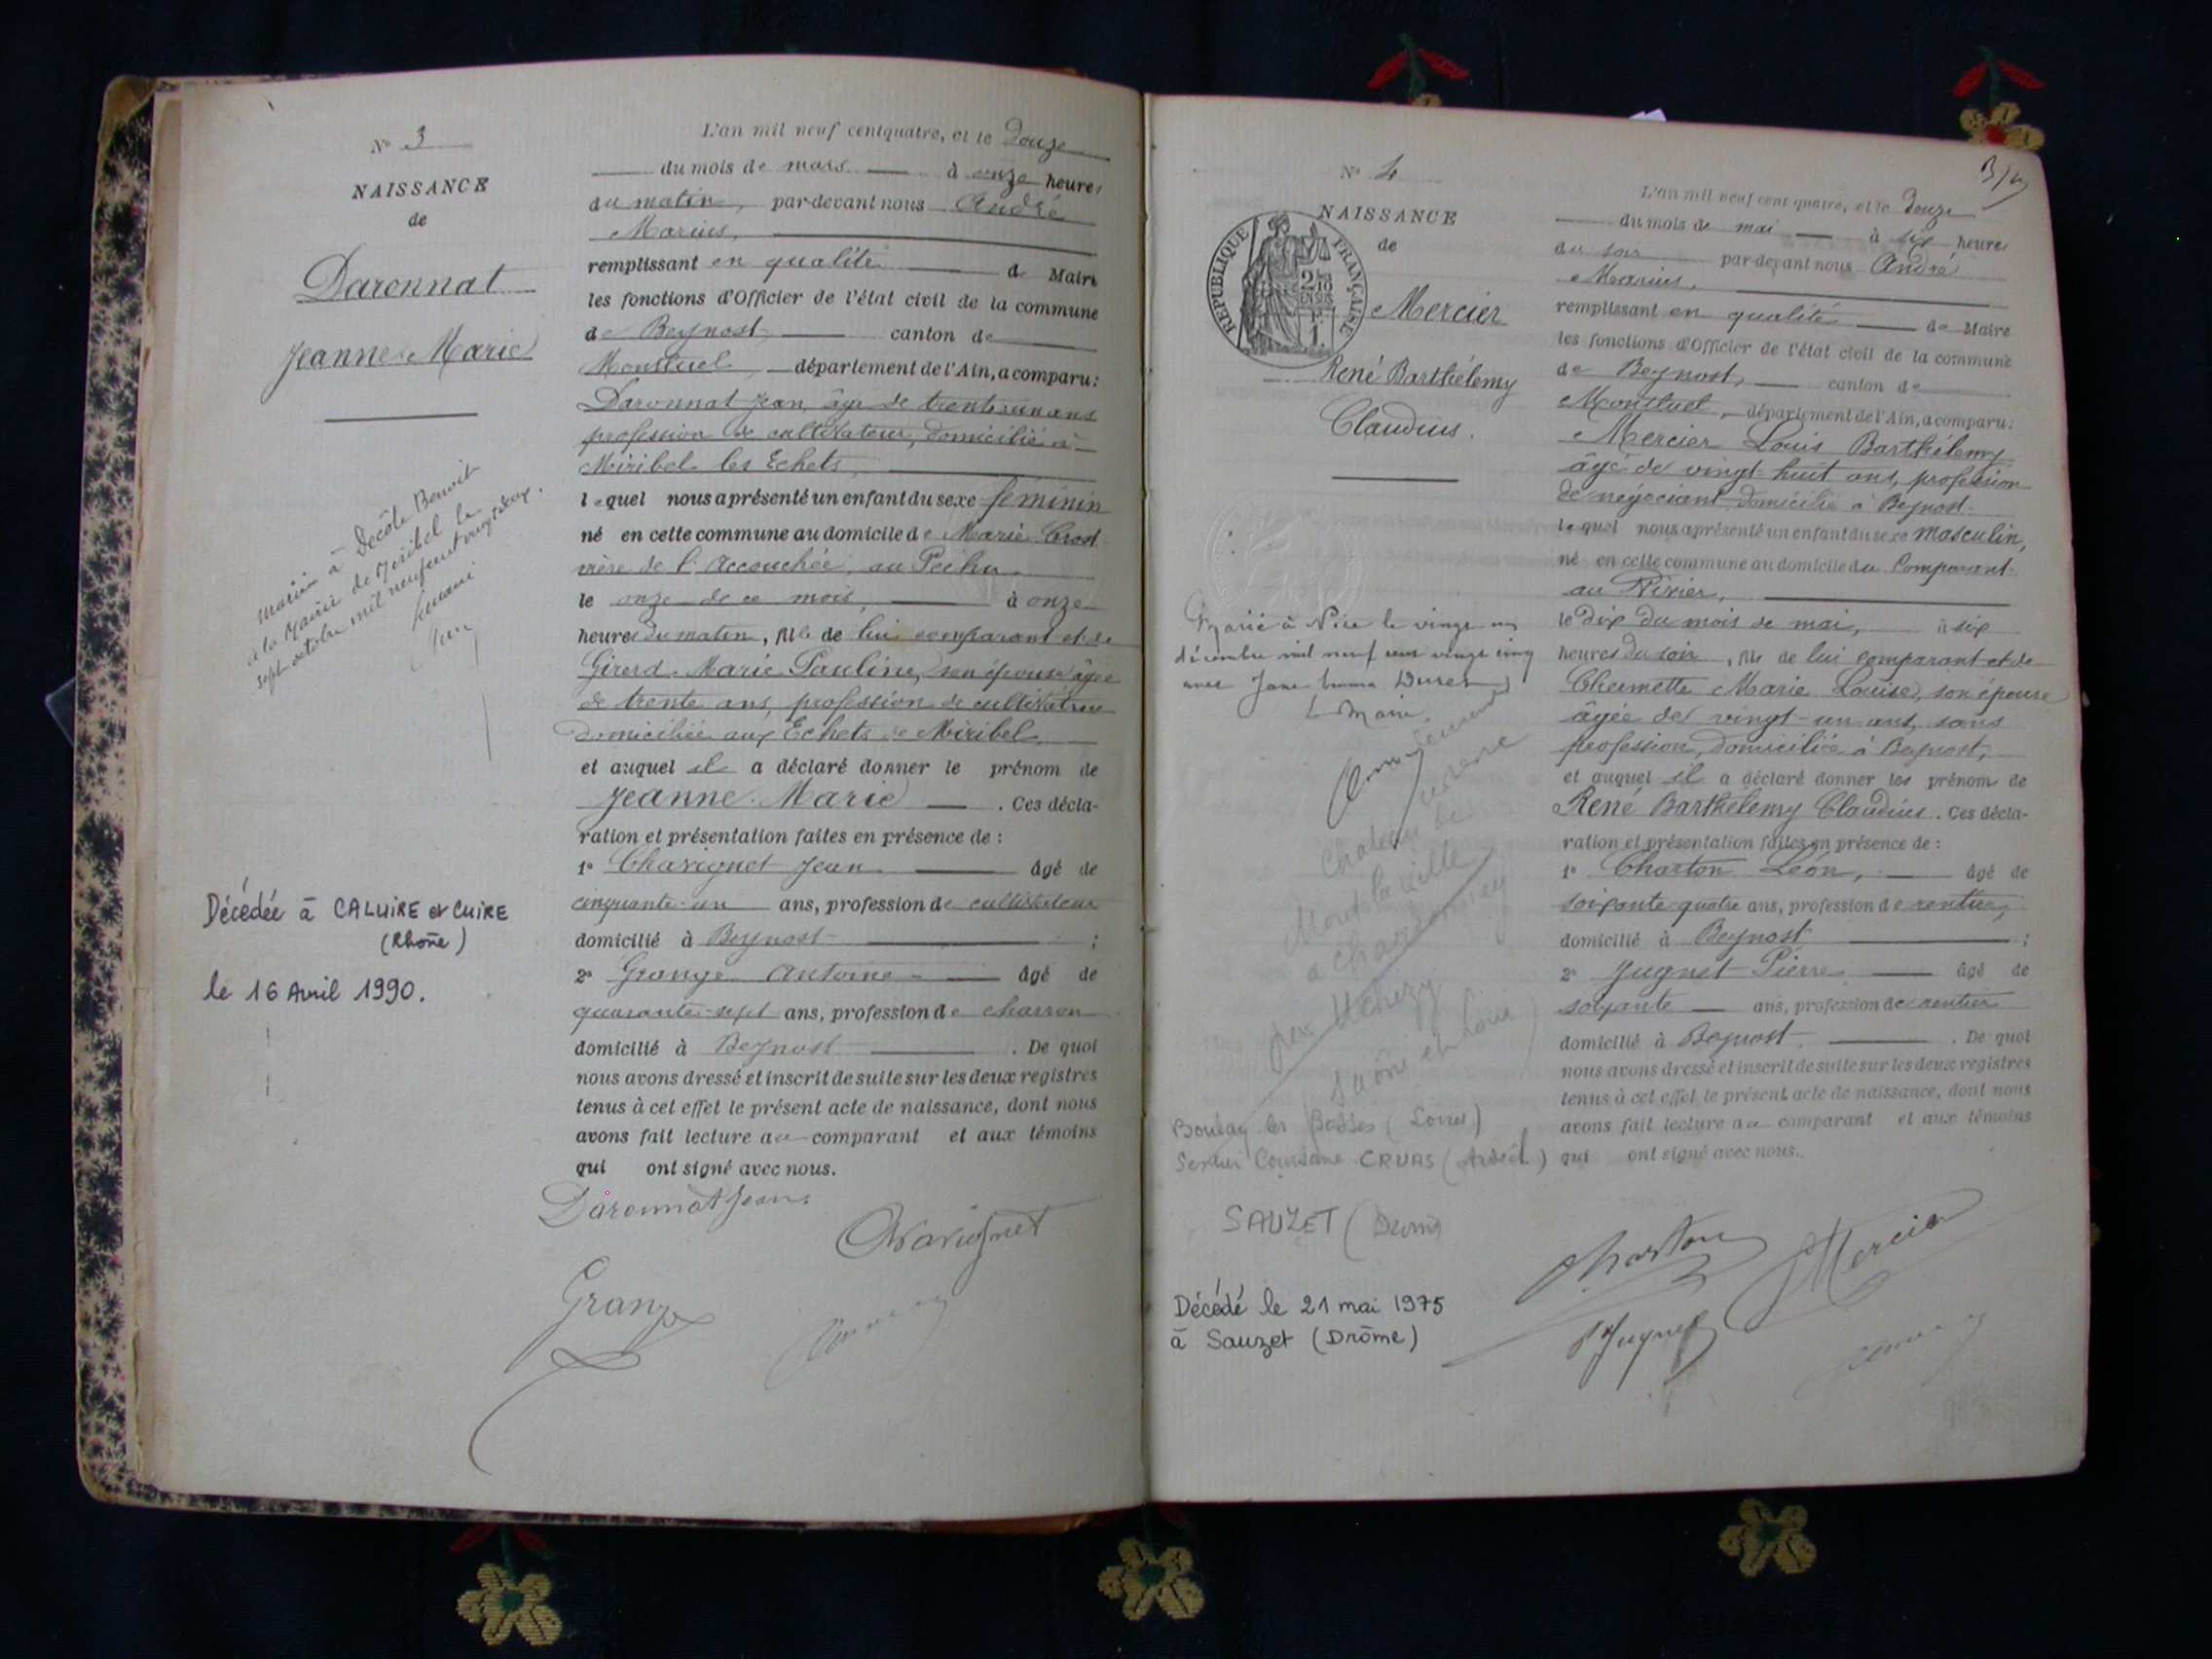 N° 3
NAISSANCE
de
Daronnat
Jeanne Marie
marié à Decôte Benoit
à la Mairie de Miribel le
sept octobre mil neuf cent vingt
Décédée à CALUIRE et CUIRE
(Rhône)
le 16 Avril 1990.
L'an mil neuf cent quatre, et le Douze
du mois de mars à onze heures
du matin, par-devant nous André
Marius,
remplissant en qualité de Maire
les fonctions d'Officier de l'état civil de la commune
de Beynost, canton de
Montluel, département de l'Ain, a comparu :
Daronnat Jean, âgé de trente-un ans
profession de cultivateur, domicilié à
Miribel les Echets,
lequel nous a présenté un enfant du sexe féminin
né en cette commune au domicile de Marie Crost
mère de l'Accouchée, au Péchu
le onze de ce mois, à onze
heures du matin, fille de lui comparant et de
Girerd Marie Pauline, son épouse âgée
de trente ans, profession de cultivatrice
domiciliée aux Echets de Miribel,
et auquel il a déclaré donner le prénom de
Jeanne Marie. Ces décla-
ration et présentation faites en présence de :
1° Chavignet Jean âgé de
cinquante-un ans, profession de cultivateur
domicilié à Beynost ;
2° Grange Antoine âgé de
quarante-sept ans, profession de charron
domicilié à Beynost. De quoi
nous avons dressé et inscrit de suite sur les deux registres
tenus à cet effet le présent acte de naissance, dont nous
avons fait lecture au comparant et aux témoins
qui ont signé avec nous.
Daronnat Jean
Chavignet
Grange
N° 4
NAISSANCE
de
RÉPUBLIQUE FRANÇAISE
2/10
EN SUS
1F.
Mercier
René Barthélemy
Claudius.
Marié à Nice le vingt un
décembre mil neuf cent vingt cinq
avec Jane Emma Duret
Le Maire,
Chateau de
(Saône et Loire)
Boulay les Barres (Loiret)
CRUAS (Ardèch)
SAUZET (Drome)
Décédé le 21 mai 1975
à Sauzet (Drôme)
L'an mil neuf cent quatre, et le Douze
du mois de mai à six heures
du soir par-devant nous André
Marius,
remplissant en qualité de Maire
les fonctions d'Officier de l'état civil de la commune
de Beynost, canton de
Montluel, département de l'Ain, a comparu :
Mercier Louis Barthélemy
âgé de vingt-huit ans, profession
de négociant domicilié à Beynost
lequel nous a présenté un enfant du sexe masculin,
né en cette commune au domicile du Comparant
au
le dix du mois de mai, à six
heures du soir, fils de lui comparant et de
Chaumette Marie Louise, son épouse
âgée de vingt-un ans, sans
profession, domiciliée à Beynost,
et auquel il a déclaré donner les prénom de
René Barthélemy Claudius. Ces décla-
ration et présentation faites en présence de :
1° Charton Léon, âgé de
soixante quatre ans, profession de rentier,
domicilié à Beynost ;
2° Jugnet Pierre âgé de
soixante ans, profession de rentier
domicilié à Beynost. De quoi
nous avons dressé et inscrit de suite sur les deux registres
tenus à cet effet, le présent acte de naissance, dont nous
avons fait lecture au comparant et aux témoins
qui ont signé avec nous.
Charton
Mercier
Jugnet